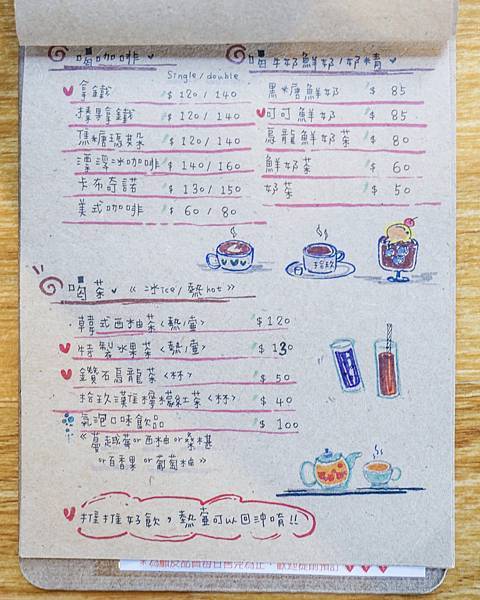 喝咖啡
Single / double
拿鐵 $120 / 140
榛果拿鐵 $120 / 140
焦糖瑪朵 $120 / 140
漂浮冰咖啡 $140 / 160
卡布奇諾 $130 / 150
美式咖啡 $60 / 80
喝牛奶鮮奶/奶精
黑糖鮮奶 $85
可可鮮奶 $85
烏龍鮮奶茶 $80
鮮奶茶 $60
奶茶 $50
拾玖
喝茶 《冰ice/熱hot》
·韓式西柚茶<熱/壺> $120
特製水果茶<熱/壺> $130
鑽石烏龍茶<杯> $50
拾玖漢堡檸檬紅茶<杯> $40
氣泡口味飲品 $100
《蔓越莓or西柚or桑椹
or百香果or葡萄柚》
推推好飲，熱壺可以回沖唷!!